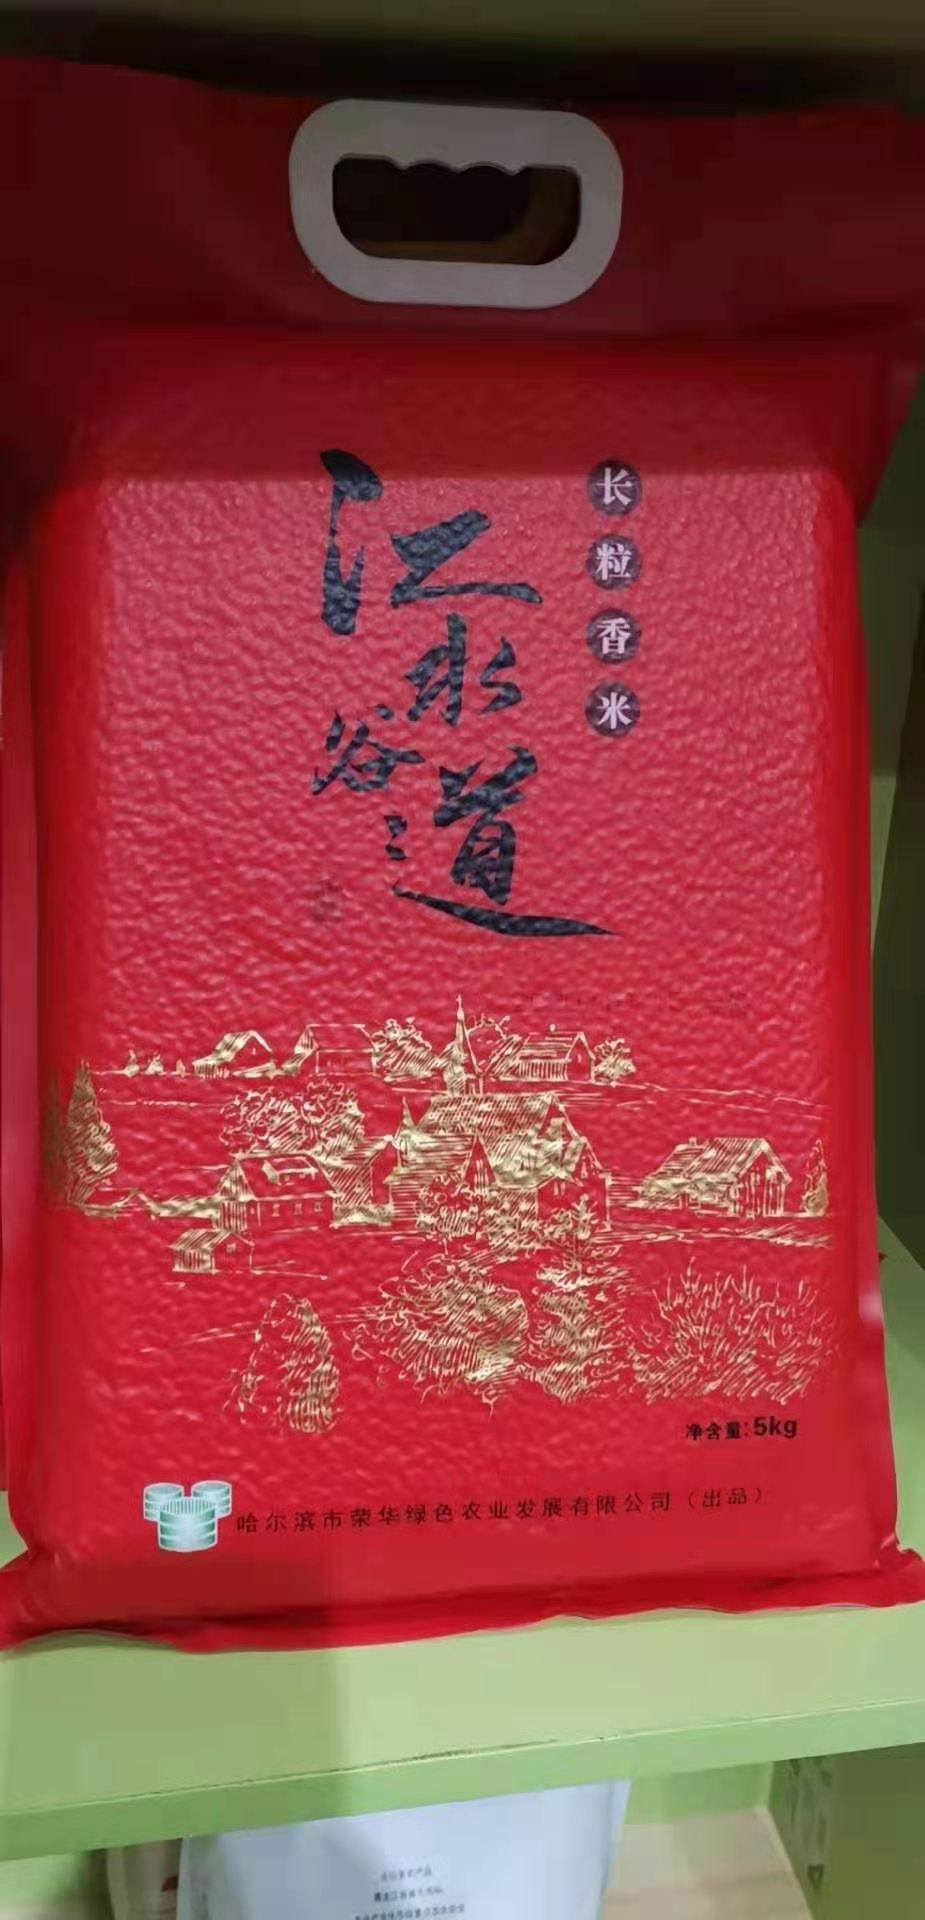 长粒香米
江水谷道
净含量:5kg
哈尔滨市荣华绿色农业发展有限公司（出品）